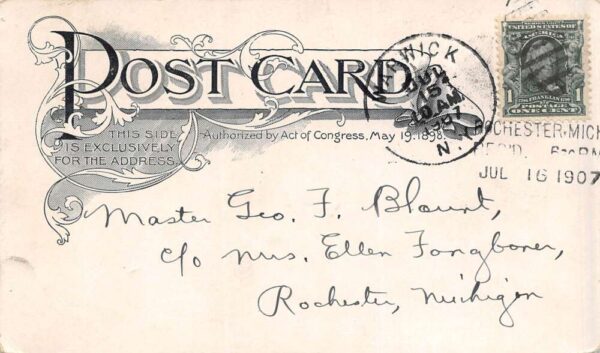 POST CARD
THIS SIDE
IS EXCLUSIVELY
FOR THE ADDRESS.
Authorized by Act of Congress, May 19, 1898.
WARWICK
JUL
15
10 AM
'07
N.Y.
UNITED STATES OF
AMERICA
FRANKLIN
1 1
POSTAGE
ONE CENT
ROCHESTER, MICH.
REC'D.
JUL 16 1907
Master Geo. F. Blount,
c/o Mrs. Ellen Fongboner,
Rochester, Michigan